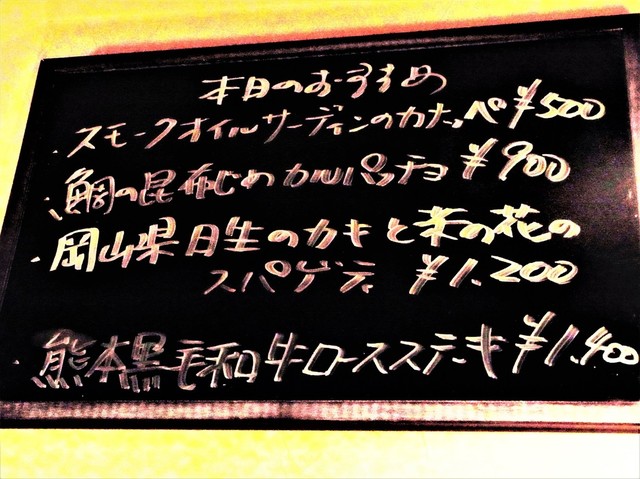 本日のおすすめ
・スモークオイルサーディンのカナッペ ¥500
・鯛の昆布じめカルパッチョ ¥900
・岡山県日生のカキと菜の花の
スパゲティ ¥1.200
・熊本黒毛和牛ロースステーキ ¥1.400